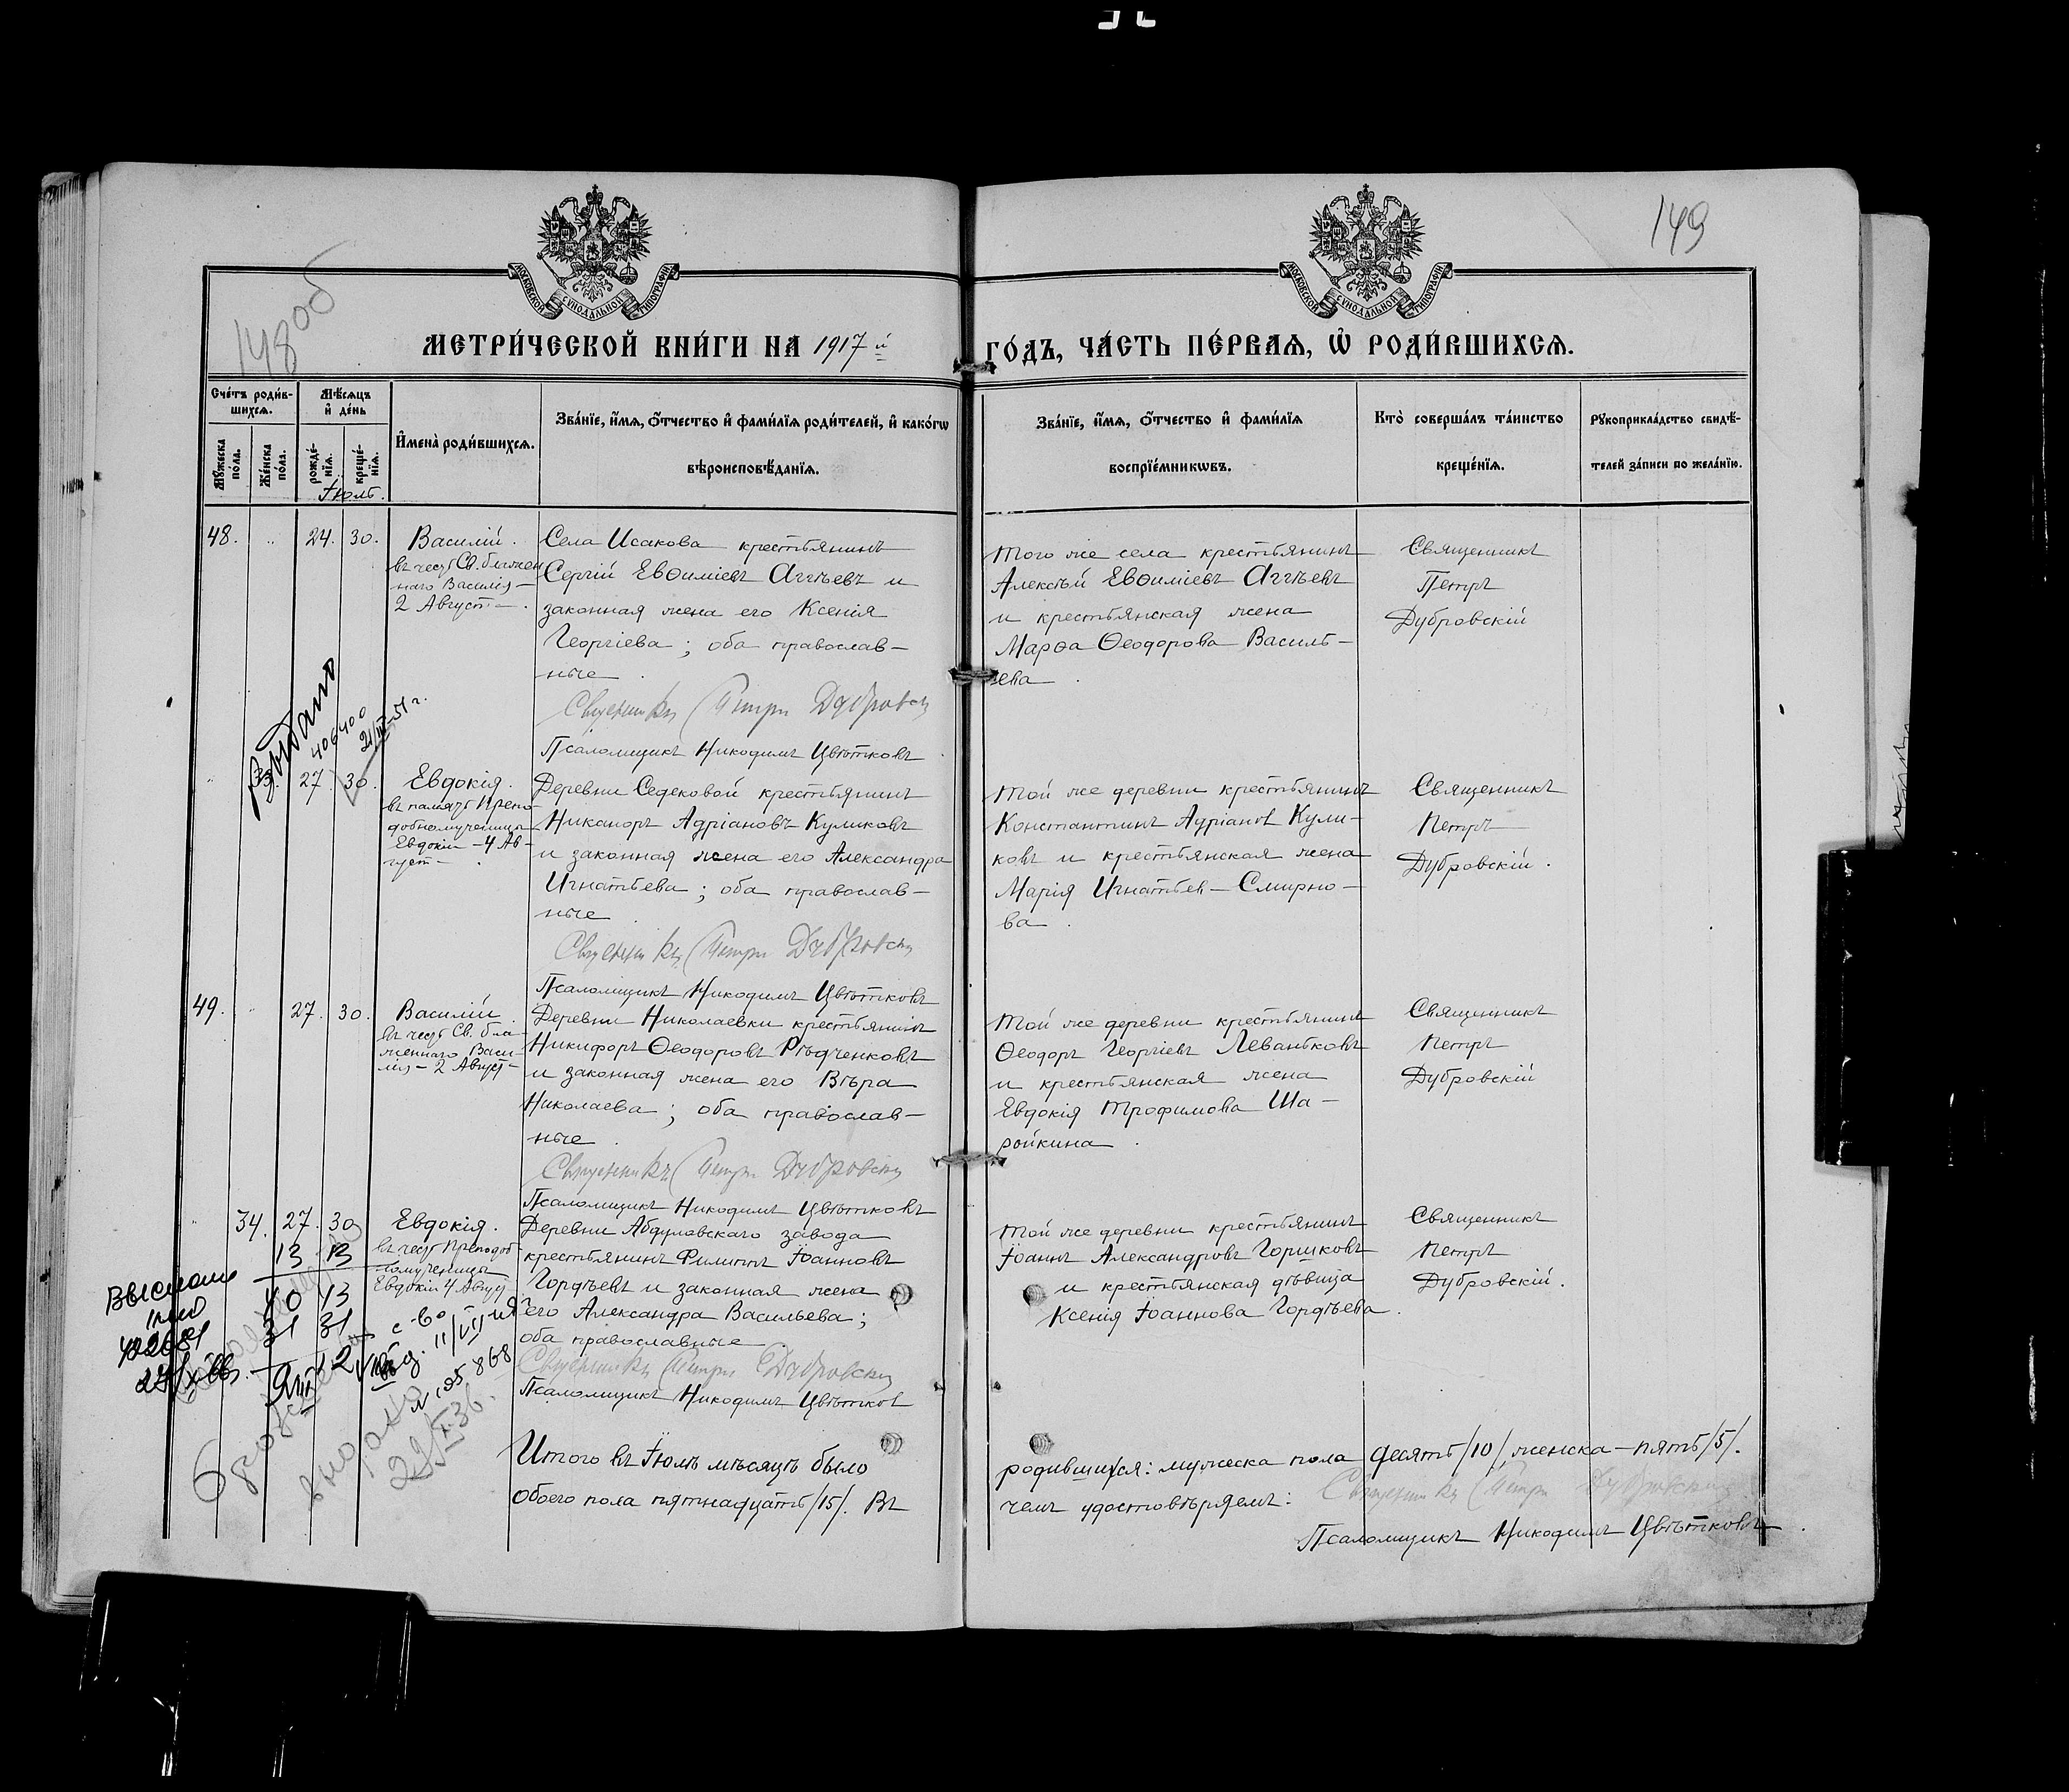 148об
149
МОСКОВСКОЙ СѴНОДАЛЬНОЙ ТИПОГРАФІИ
МОСКОВСКОЙ СѴНОДАЛЬНОЙ ТИПОГРАФІИ
МЕТРИ́ЧЕСКОЙ КНИ́ГИ НА 1917 й
ГО́ДЪ, ЧА́СТЬ ПЕ́РВАЯ, Ѡ҆ РОДИ́ВШИХСЯ.
Сче́тъ роди́в-
шихся.
Мѣ́сяцъ
и҆ де́нь
Мꙋ́жеска
по́ла.
Же́нска
по́ла.
рожде́-
нїя.
креще́-
нїя.
Іюль.
И҆мена̀ роди́вшихся.
Зва́нїе, и҆́мя, ѻ҆́тчество и҆ фами́лїя роди́телей, и҆ како́гѡ
вѣроисповѣ́данїя.
Зва́нїе, и҆́мя, ѻ҆́тчество и҆ фами́лїя
воспрїе́мникѡвъ.
Кто̀ соверша́лъ та́инство
креще́нїя.
Рꙋкоприкла́дство свидѣ́-
телей за́писи по жела́нїю.
48. 24. 30. Василій.
въ честь Св. блажен
наго Василія –
2 Август –.
Села Исакова крестьянинъ
Сергій Евѳиміевъ Аггѣевъ и
законная жена его Ксенія
Георгіева; оба православ–
ные.
Священникъ Петръ Дубровскій
Псаломщикъ Никодимъ Цвѣтковъ
того же села крестьянинъ
Алексѣй Евѳиміевъ Аггѣевъ
и крестьянская жена
Марѳа Ѳеодорова Василь–
ева.
Священникъ
Петръ
Дубровскій
Выдано
406400
27. 30. Евдокія.
въ память препо–
добномученицы
Евдокіи – 4 Ав–
густ –.
Деревни Седековой крестьянинъ
Никаноръ Адріановъ Куликовъ
и законная жена его Александра
Игнатьева; оба православ–
ные
Священникъ Петръ Дубровскій
Псаломщикъ Никодимъ Цвѣтковъ
той же деревни крестьянинъ
Константинъ Адріанов Кули–
ковъ и крестьянская жена
Марія Игнатьев – Смирно–
ва.
Священникъ
Петръ
Дубровскій.
49. 27. 30. Василій.
въ честь Св. бла–
женнаго Васи–
лія – 2 Август –
Деревни Николаевки крестьянинъ
Никифоръ Ѳеодоровъ Рѣдченковъ
и законная жена его Вѣра
Николаева; оба православ–
ные.
Священникъ Петръ Дубровскій
Псаломщикъ Никодимъ Цвѣтковъ
той же деревни крестьянинъ
Ѳеодоръ Георгіевъ Леваньковъ
и крестьянская жена
Евдокія Трофимова Ша–
ройкина.
Священникъ
Петръ
Дубровскій
34. 27. 30 Евдокія.
въ честь преподоб–
номученицы
Евдокіи 4 Август
Деревни Абдуловскаго завода
крестьянинъ Филиппъ Іоанновъ
Гордѣевъ и законная жена
его Александра Васильева;
оба православные.
Священникъ Петръ Дубровскій
Псаломщикъ Никодимъ Цвѣтков
той же деревни крестьянинъ
Іоаннъ Александровъ Горшковъ
и крестьянская дѣвица
Ксенія Іоаннова Гордѣева.
Священникъ
Петръ
Дубровскій.
13 13
40 13
31 31
Итого въ Іюлѣ мѣсяцѣ было
обоего пола пятнадцать /15/. Въ
родившихся: мужеска пола десять /10/, женска – пять /5/.
чемъ удостовѣряемъ:
Священникъ Петръ Дубровскій
Псаломщикъ Никодимъ Цвѣтковъ